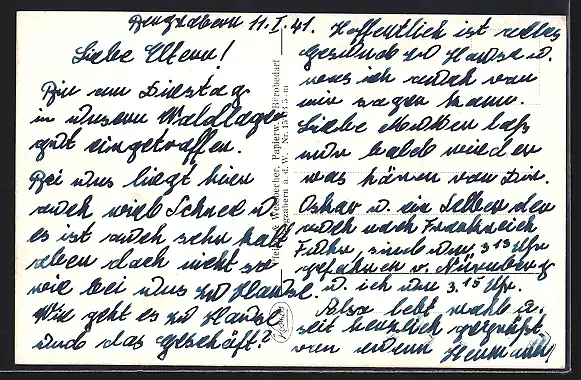 Bergzabern 11. I. 41.
Liebe Eltern!
Bin am Dienstag
in unserm Waldlager
gut eingetroffen.
Bei uns liegt hier
auch viel Schnee u.
es ist auch sehr kalt
aber doch nicht so
wie bei uns zu Hause.
Wie geht es zu Hause
und das Geschäft?
Hoffentlich ist alles
gesund zu Hause u.
was ich auch von
mir sagen kann.
Liebe Mutter laß
mir bald wieder
was hören von Dir.
Oskar u. ein Selber der
auch nach Frankreich
Fuhr, sind um 3 15 Uhr
gefahren v. Nürnberg
u. ich um 3.15 Uhr.
Also lebt wohl u.
seit herzlich gegrüßt
von euerm Hermann!
Papierw. u. Bürobedarf
Bergzabern a. d. W. Nr.